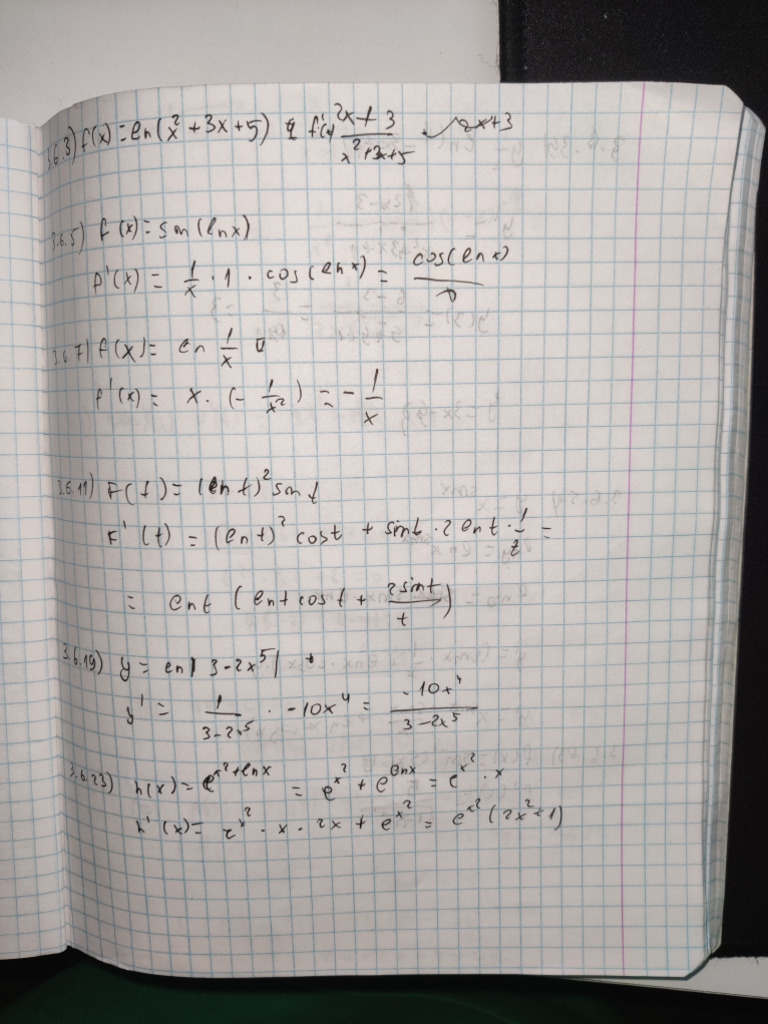 3.6.3) f(x) = ln(x² + 3x + 5) f'(x) (2x + 3)/(x² + 3x + 5) 2x+3
3.6.5) f(x) = sin(lnx)
f'(x) = 1/x · 1 · cos(lnx) = cos(lnx)/
3.6.7) f(x) = ln 1/x
f'(x) = x · (- 1/x²) = - 1/x
3.6.11) F(t) = (ln t)² sin t
F'(t) = (ln t)² cost + sint · 2 lnt · 1/t =
= lnt (lnt cost + 2sint/t)
3.6.19) y = ln|3-2x⁵|
y' = 1/(3-2x⁵) · -10x⁴ = -10x⁴/(3-2x⁵)
3.6.23) h(x) = e^(x²+lnx) = e^(x²) + e^(lnx) = e^(x²) · x
h'(x) = e^(x²) · x · 2x + e^(x²) = e^(x²) (2x²+1)